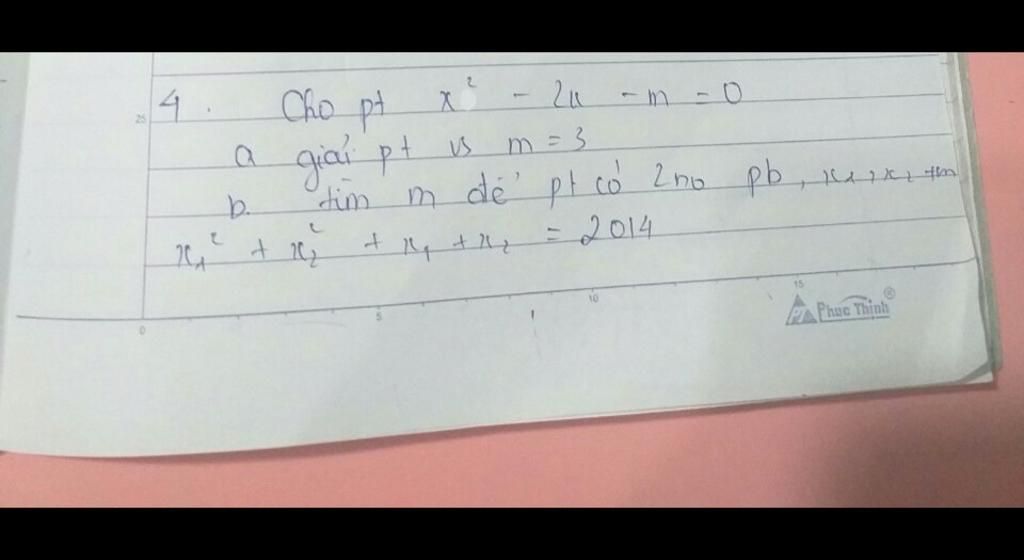 4. Cho pt x² - 2x - m = 0
a giải pt vs m = 3
b. tìm m để pt có 2no pb, x₁, x₂ tm
x₁² + x₂² + x₁ + x₂ = 2014
25
0 5 10 15
Phuc Thinh®